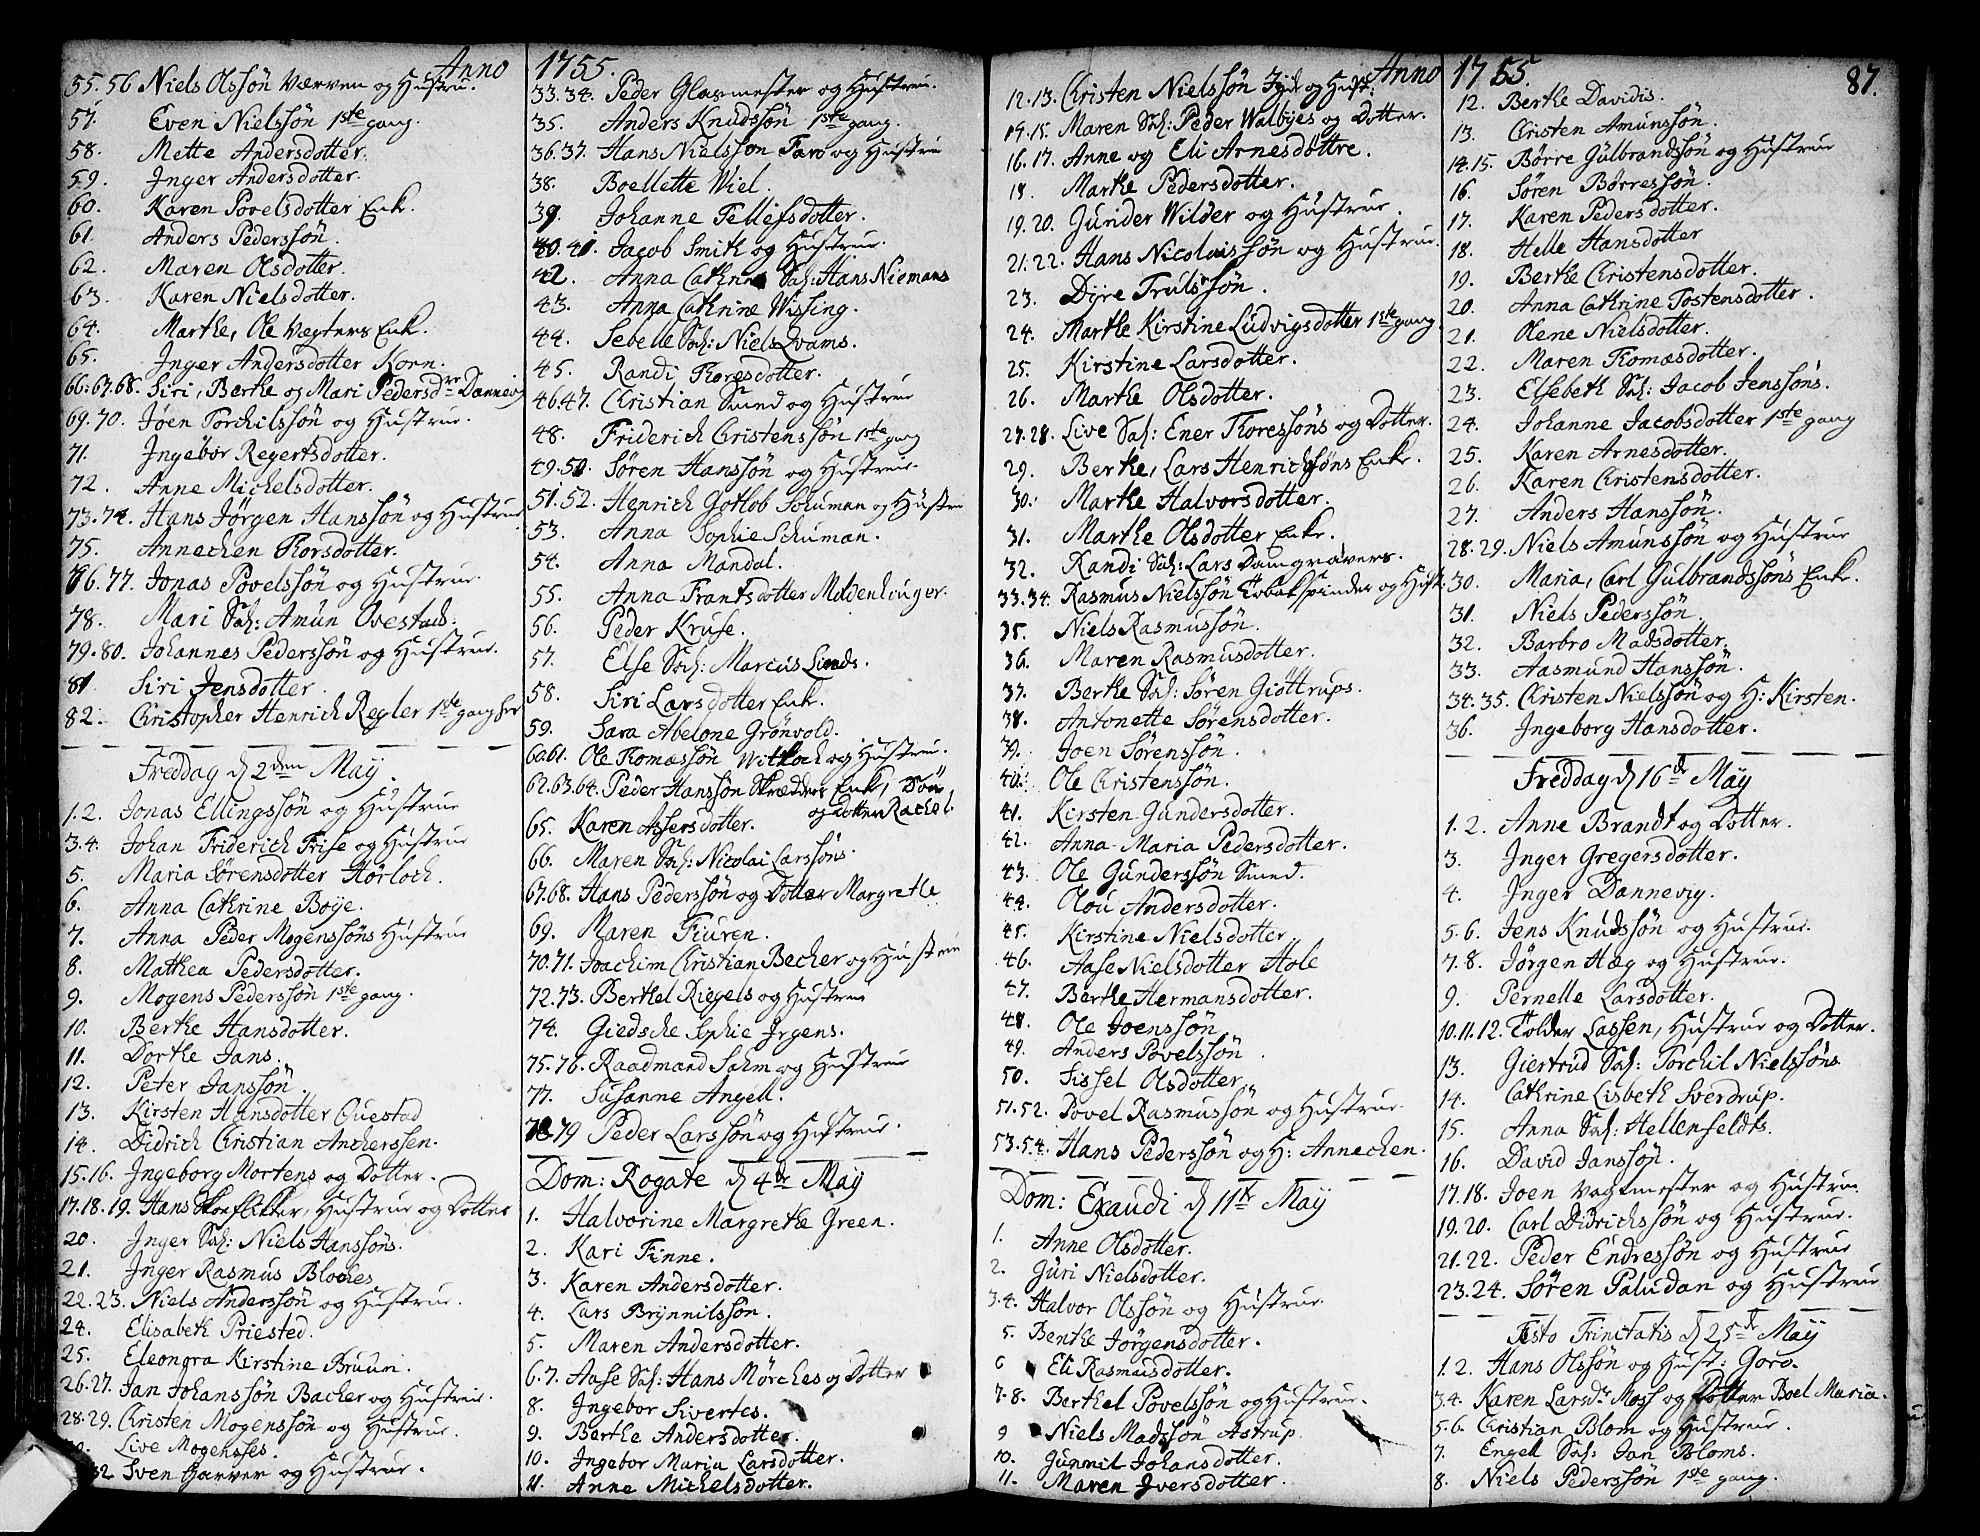 Anno
55.56 Niels Olssøn Værven og Hustru.
57. Even Nielssøn 1ste gang.
58. Mette Andersdotter.
59. Inger Andersdotter.
60. Karen Povelsdotter Enk.
61. Anders Pederssøn.
62. Maren Olsdotter.
63. Karen Nielsdotter.
64. Marthe, Ole Vegters Enk.
65. Inger Andersdotter Korn.
66.67.68. Siri, Berthe og Mari Pedersdtr Dannevig
69.70. Joen Torchilssøn og Hustrue.
71. Ingebor Regertsdotter.
72. Anne Michelsdotter.
73.74. Hans Jörgen Hanssøn og Hustrue
75. Annechen Thorsdotter.
76.77. Jonas Povelssøn og Hustrue.
78. Mari Sal: Amun Ovestads.
79.80. Johannes Pederssøn og Hustrue.
81 Siri Jensdotter.
82. Christopher Henrich Regler 1ste gang her
Freddag d 2den Maÿ.
1.2. Jonas Ellingssøn og Hustrue
3.4. Johan Friderich Frise og Hustrue
5. Maria Sörensdotter Hörloch.
6. Anna Cathrine Boÿe.
7. Anna Peder Mogenssøns Hustrue
8. Mathea Pedersdotter.
9. Mogens Pederssøn 1ste gang.
10. Berthe Hansdotter.
11. Dorthe Jans.
12. Peter Janssøn.
13. Kirsten Hansdotter Questad
14. Didrich Christian Ancherssen.
15.16. Ingeborg Mortens og Dotter.
17.18.19. Hans Skoeflikker, Hustrue og Dotter
20. Inger Sal: Niels Hanssøns.
21. Inger Rasmus Bloches
22.23. Niels Anderssøn og Hustrue.
24. Elisabeth Priested.
25. Eleonora Kirstine Bruun.
26.27. Jan Johanssøn Bacher og Hustrue.
28.29. Christen Mogenssøn og Hustrue.
30. Live Mogenses.
32. Sven Garver og Hustrue.
1755.
33.34. Peder Glasmester og Hustrue.
35. Anders Knudssøn 1ste gang.
36.37. Hans Nielsson Faro og Hustrue
38. Boellette Wiel.
39. Johanne Tellefsdotter.
40.41. Jacob Smith og Hustrue.
42. Anna Cathrine Sal: Hans Niemans
43. Anna Cathrine Wissing.
44. Sebelle Sal: Niels Qvams.
45. Randi Thoresdotter.
46.47. Christian Smed og Hustrue
48. Friderich Christenssøn 1ste gang
49.50. Søren Hanssøn og Hustrue.
51.52. Henrich Gotlob Schuman og Hustrue
53. Anna Sophie Schuman.
54. Anna Mandal.
55. Anna Frantsdotter Moldenhauger.
56. Peder Kruse.
57. Else Sal: Marcus Linds.
58. Siri Larsdotter Enk.
59. Sara Abelone Grönvold.
60.61. Ole Thomæssøn Witloch og Hustrue.
62.63.64. Peder Hanssøn Skrædders Enk, Son
og Dotter Rachel.
65. Karen Assersdotter.
66. Maren Sal: Nicolai Larssøns.
67.68. Hans Pederssøn og Dotter Margrethe
69. Maren Fiuren.
70.71. Joachim Christian Becher og Hustrue
72.73. Berthel Riegels og Hustrue
74. Giedsche Sophie Jrgens.
75.76. Raadmand Sahm og Hustrue
77. Susanne Angell.
78.79 Peder Larssøn og Hustrue.
Dom: Rogate d 4de Maÿ
1. Halvorine Margrethe Green.
2. Kari Finne.
3. Karen Andersdotter.
4. Lars Brÿnnilssøn.
5. Maren Andersdotter.
6.7. Aase Sal: Hans Mörches og Dotter
8. Ingebor Sivertes.
9. Berthe Andersdotter.
10. Ingebor Maria Larsdotter.
11. Anne Michelsdotter.
Anno
12.13. Christen Nielssøn Jÿde og Hust:
14.15. Maren Sal: Peder Walbÿes og Dotter.
16.17. Anne og Eli Arnesdøttre.
18. Marthe Pedersdotter.
19.20. Gunder Wilder og Hustrue.
21.22. Hans Nicolaissøn og Hustrue.
23. Dÿre Trulssøn.
24. Marthe Kirstine Ludvigsdotter 1ste gang
25. Kirstine Larsdotter.
26. Marthe Olsdotter.
27.28. Live Sal: Ener Thoressøns og Dotter.
29. Berthe, Lars Henrichsøns Enke.
30. Marthe Halvorsdotter.
31. Marthe Olsdotter Enke.
32. Randi Sal: Lars Damgravers.
33.34. Rasmus Nielssøn Tobakspinder og Hust.
35. Niels Rasmussøn.
36. Maren Rasmusdotter.
37. Berthe Sal: Søren Giøttrups.
38. Antonette Sørensdotter.
39. Joen Sörenssøn.
40. Ole Christenssøn.
41. Kirsten Gundersdotter.
42. Anna Maria Pedersdotter.
43. Ole Gunderssøn Smed.
44. Olou Andersdotter.
45. Kirstine Nielsdotter
46. Aase Nielsdotter Hole
47. Berthe Hermansdotter.
48. Ole Joenssøn
49. Anders Povelssøn.
50. Sissel Olsdotter
51.52. Povel Rasmussøn og Hustrue.
53.54. Hans Pederssøn og H: Annechen.
Dom: Exaudi d 11te Maÿ
1. Anne Olsdotter.
2. Guri Nielsdotter.
3.4. Halvor Olssøn og Hustrue.
5. Benthe Jörgensdotter.
6 Eli Rasmusdotter.
7.8. Berthel Povelssøn og Hustrue.
9 Niels Madssøn Astrup.
10. Gunmil Johansdotter.
11. Maren Iversdotter.
1755.
87.
12. Berthe Davidis.
13. Christen Amunssøn.
14.15. Börre Gulbrandssøn og Hustrue
16. Sören Börressøn.
17. Karen Pedersdotter.
18. Helle Hansdotter
19. Berthe Christensdotter.
20. Anna Cathrine Tostensdotter.
21. Olene Nielsdotter.
22. Maren Thomasdotter.
23. Elsebeth Sal: Jacob Jenssøns.
24. Johanne Jacobsdotter 1ste gang
25. Karen Arnesdotter.
26. Karen Christensdotter.
27. Anders Hanssøn.
28.29. Niels Amunssøn og Hustrue
30. Maria, Carl Gulbrandssøns Enke.
31. Niels Pederssøn.
32. Barbro Madsdotter.
33. Aasmund Hanssøn.
34.35. Christen Nielssøn og H: Kirsten.
36. Ingeborg Hansdotter.
Freddag d 16de Maÿ
1.2. Anne Brandt og Dotter.
3. Inger Gregersdotter.
4. Inger Dannevig.
5.6. Jens Knudssøn og Hustrue.
7.8. Jörgen Hæg og Hustrue.
9. Pernelle Larsdotter.
10.11.12. Tolder Lassen, Hustrue og Dotter.
13. Giertrud Sal: Torchil Nielssøns
14. Cathrine Lisbeth Sverdrup.
15. Anna Sal: Hellenfeldts.
16. David Janssøn.
17.18. Joen Vagtmester og Hustrue
19.20. Carl Didrichssøn og Hustrue.
21.22. Peder Endressøn og Hustrue
23.24. Sören Paludan og Hustrue
Festo Trinitatis d 25de Maÿ
1.2. Hans Olssøn og Hust: Goro.
3.4. Karen Larsdr Moss og Dotter Boel Maria.
5.6. Christian Blom og Hustrue.
7. Engell Sal: Jan Bloms.
8. Niels Pederssøn 1ste gang.